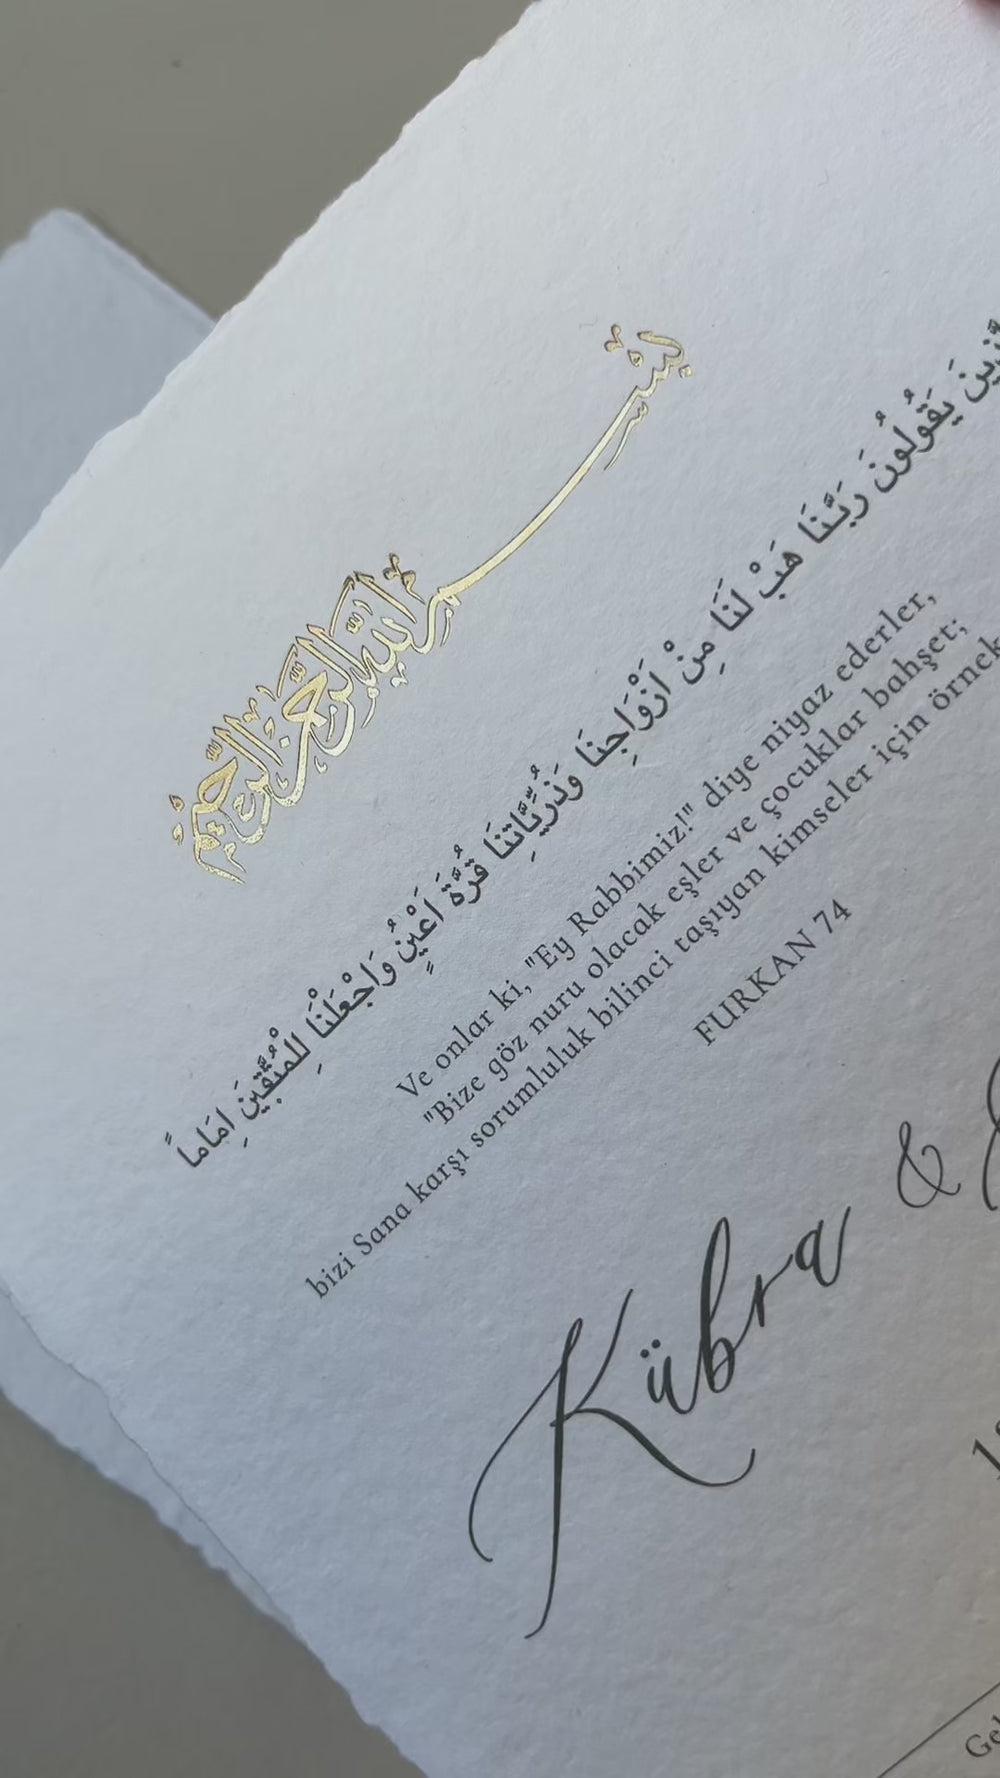 بسم الله الرحمن الرحيم
يَقُولُونَ رَبَّنَا هَبْ لَنَا مِنْ اَزْوَاجِنَا وَذُرِّيَّاتِنَا قُرَّةَ اَعْيُنٍ وَاجْعَلْنَا لِلْمُتَّقٖينَ اِمَاماً
Ve onlar ki, "Ey Rabbimiz!" diye niyaz ederler,
"Bize göz nuru olacak eşler ve çocuklar bahşet;
bizi Sana karşı sorumluluk bilinci taşıyan kimseler için örnek
FURKAN 74
Kübra &